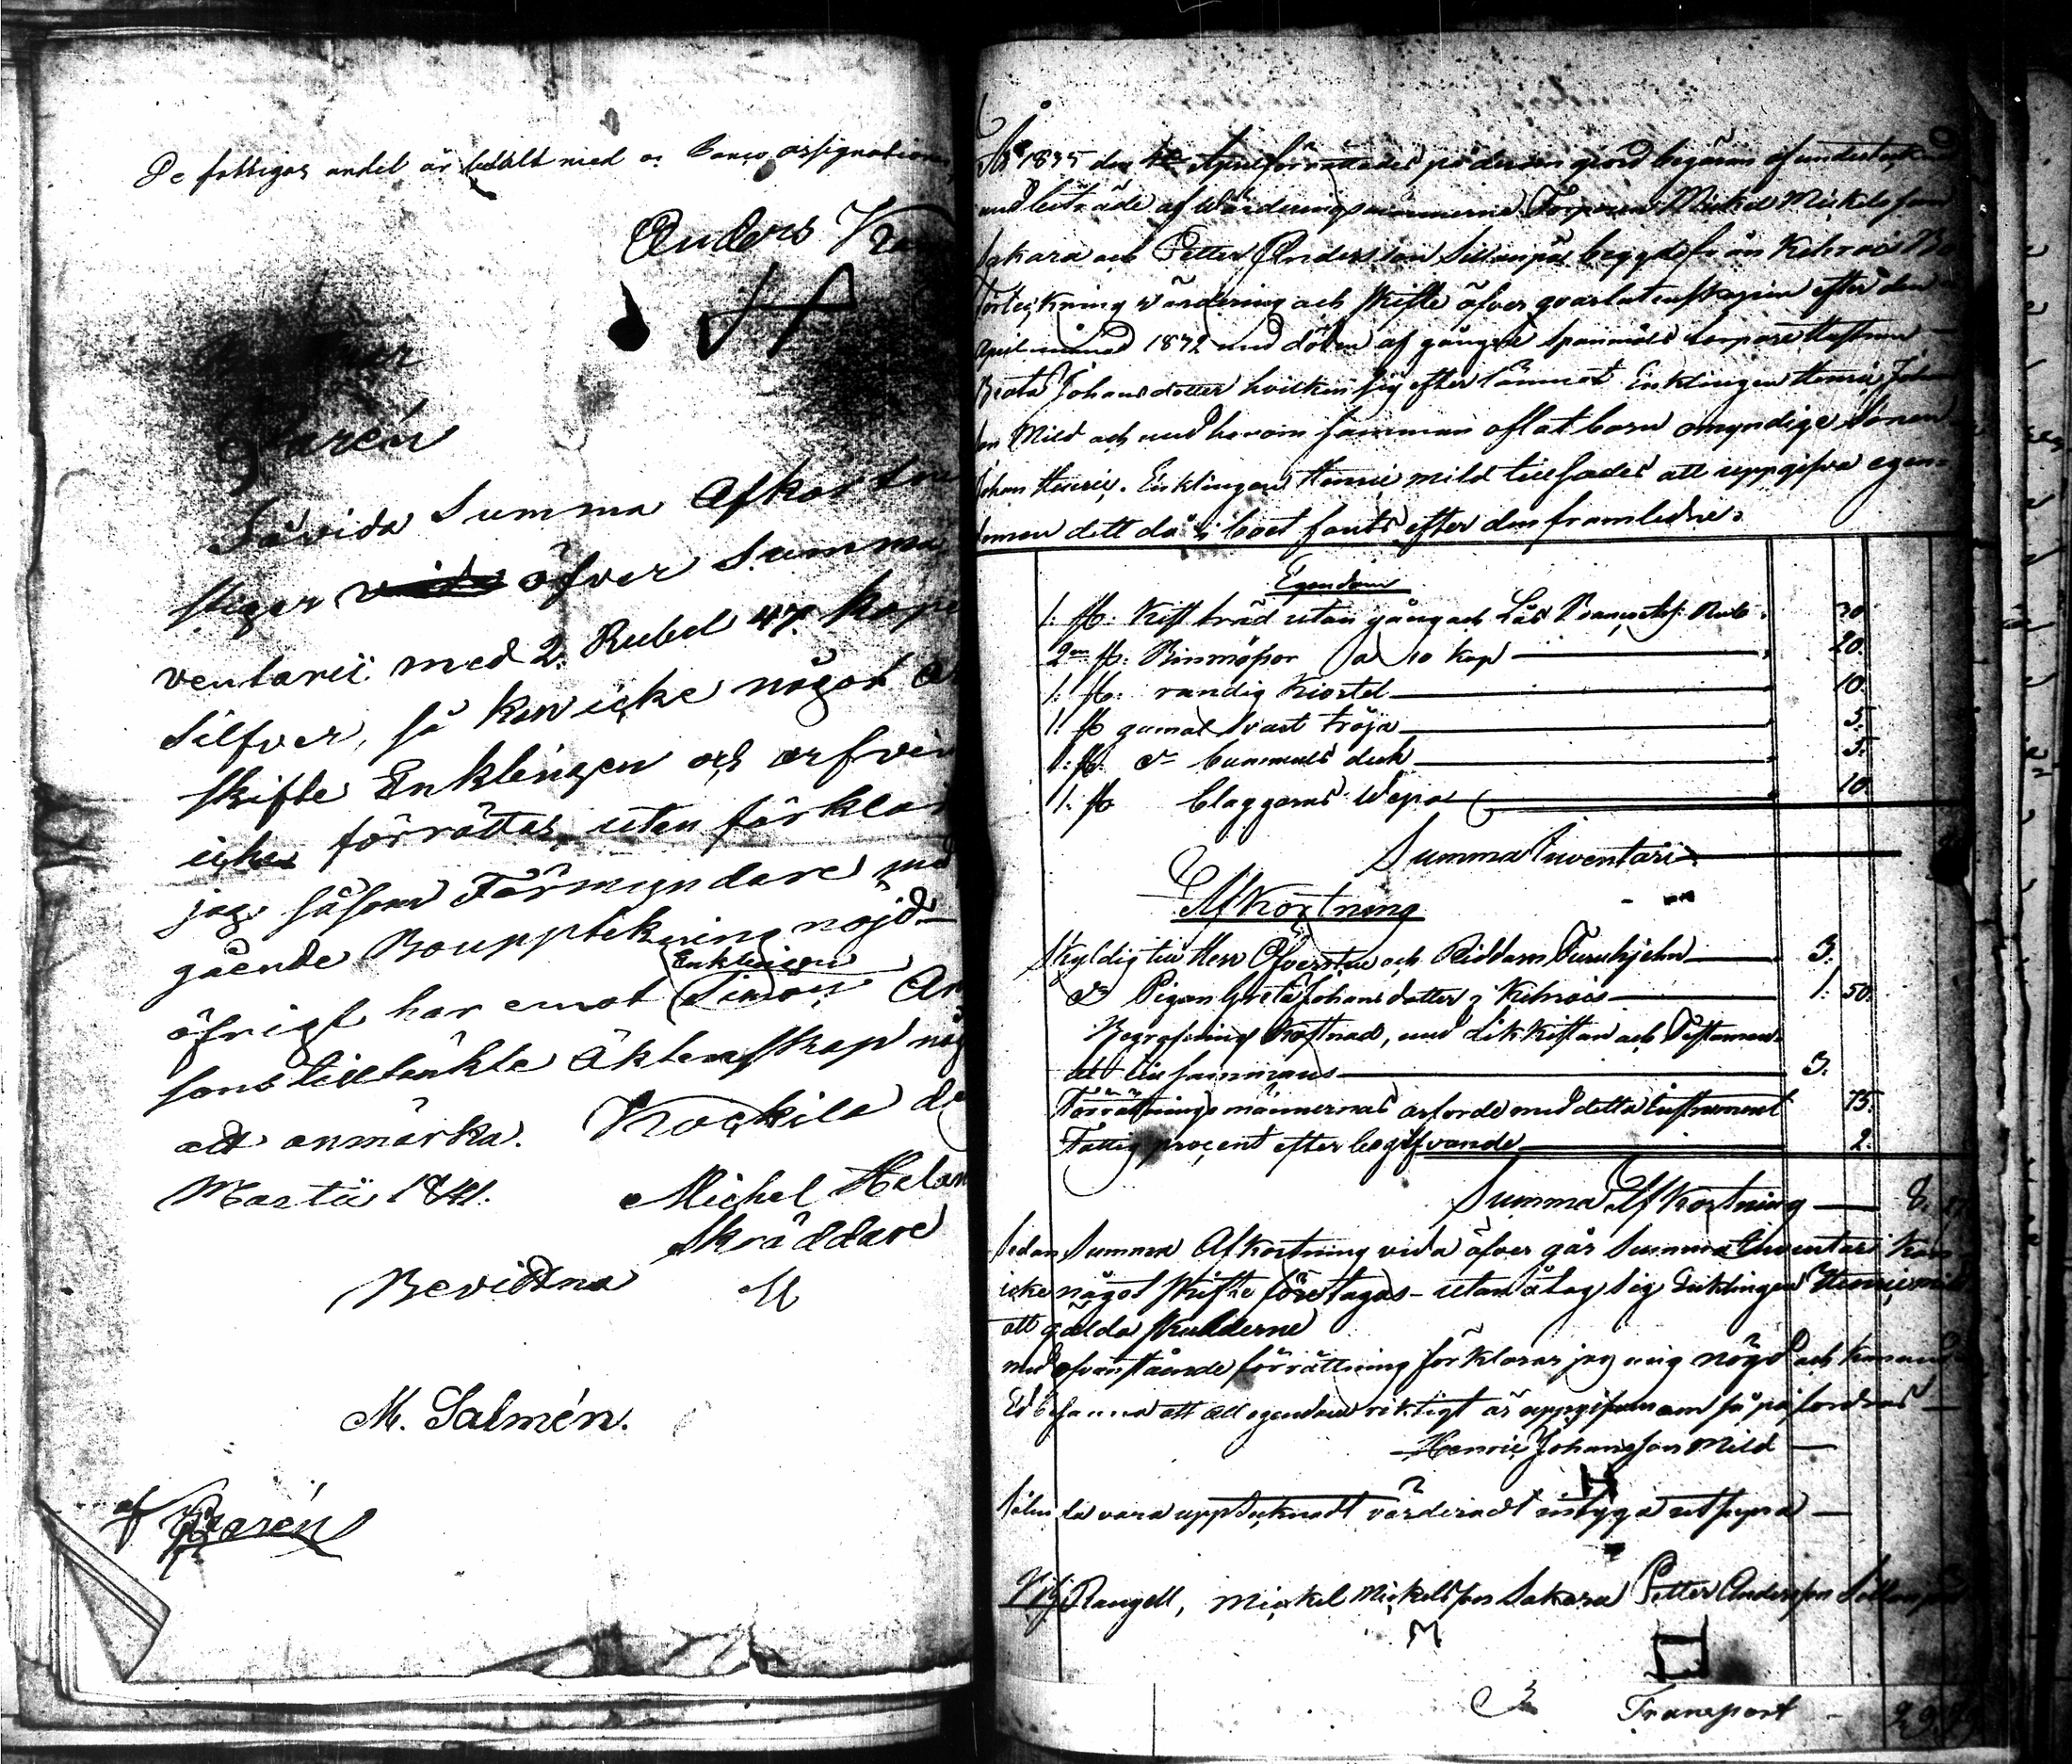 De fattigas andel är betalt med Banco assignationer
Anders
Karén
Såvida Summa Afkortni
stiger öfver Summa
ventarii med 2. Rubel 47. kope
Silfver, så kan icke något
skifte Enklingen och arfvin
icke förrättas, utan förklar
jag såsom Förmyndare med
gående Bouppteckning nöjd
Enklingen
öfrigt har emot Simon An
sons tilltänkte äktenskap någ
att anmärka. Kockila de
Martii 1841. Michel Helan
Skräddare
Bevittna M
M. Salmén.
Karén
År 1845 den April förrättades på derom gjord begäran af undertecknad
med biträde af Värderingsmännerne Torparen Mickel Mickelsson
Sakara och Petter Andersson Sillanpää begge från Kihrois
förteckning värdering och skifte öfver qvarlåtenskapen efter den i
April månad 1842 med döden af gångne torpare Hustrun
Beata Johansdotter hvilken sig efterlämnat Enklingen Henric Johans
son Mild och med honom samman aflat barn omyndige Sonen
Johan Henric. Enklingen Henric Mild tillsades att uppgifva egen-
domen dett då i boet fants efter den framledne.
Egendom
1. st. Kist träd utan gång och Lås 30.
2ne st. Binmössor a 10 kop 20.
1. st. randig Kiortel 10.
1. st gamal svart tröja 5.
1. st. do bummuls duk 5.
1. st blaggarns Wepa 10.
Summa Inventari
Afkortning
Skyldig till Herr Öfversten och Riddaren Furuhjelm 3.
do Pigan Greta Johansdotter i Kihrois 1. 50.
Begrafnings kostnad, med Likkistan och Testament
det till sammans 3.
Förrättningsmännernas arfvode med detta instrument 75.
Fattig procent efter begifvande 2.
Summa Afkortning 8.
Sedan Summa Afkortning vida öfver går Summa Inventari kan
icke något skifte företagas - utan åtog sig Enklingen Henric Mild
att gälda skulderne
med ofvanstående förrättning förklarar jag mig nögd och kan med
Ed besanna att all egendom riktigt är uppgifven om så påfordras
Henric Johansson Mild
H
Sålunda vara upptecknadt värderadt intyga utsupra
Rangell, Mickel Mickelsson Sakara Petter Andersson Sillanpää
M
Transport